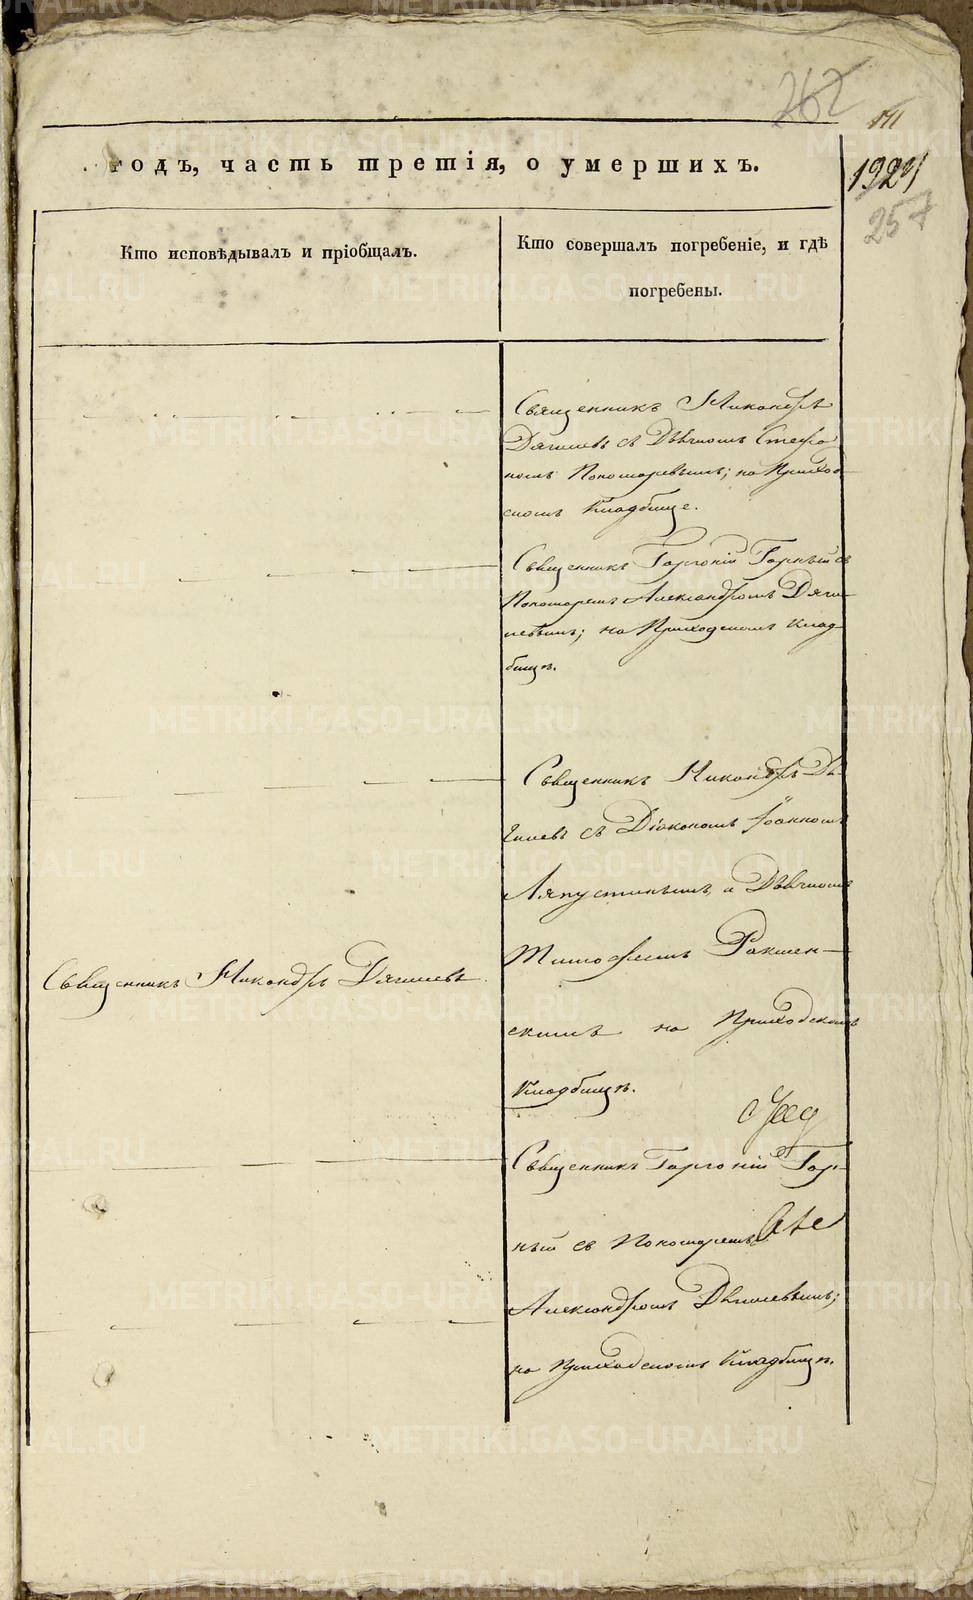 262
годъ, часть третія, о умершихъ.
257
Кто исповѣдывалъ и пріобщалъ.
Кто совершалъ погребеніе, и гдѣ
погребены.
Священникъ Никандръ
Дягилевъ съ Дьячкомъ Стефа
номъ Пономаревымъ; на Приход
скомъ Кладбище.
Священникъ Горгоній Горный съ
Пономаремъ Александромъ Дяги
левымъ; на Приходскомъ Клад
бищѣ.
Священникъ Никандръ Дя
гилевъ съ Діакономъ Іоанномъ
Ляпустинымъ, и Дьячкомъ
Тимофеемъ
скимъ на Приходскомъ
Кладбищѣ.
Священникъ Никандръ Дягилевъ
Священникъ Горгоній Гор
ный съ Пономаремъ
Александромъ Дягилевымъ;
на Приходскомъ Кладбищѣ.
METRIKI.GASO-URAL.RU